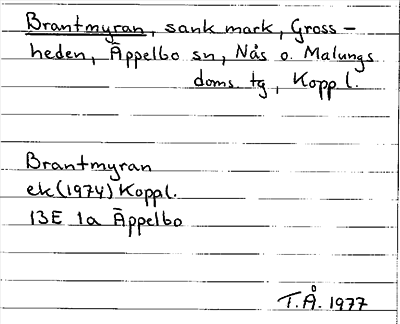 Brantmyran, sank mark, Gross-
heden, Äppelbo sn, Nås o. Malungs
doms. tg, Kopp l.
Brantmyran
ek (1974) Koppl.
13E 1a Äppelbo
T.Å. 1977